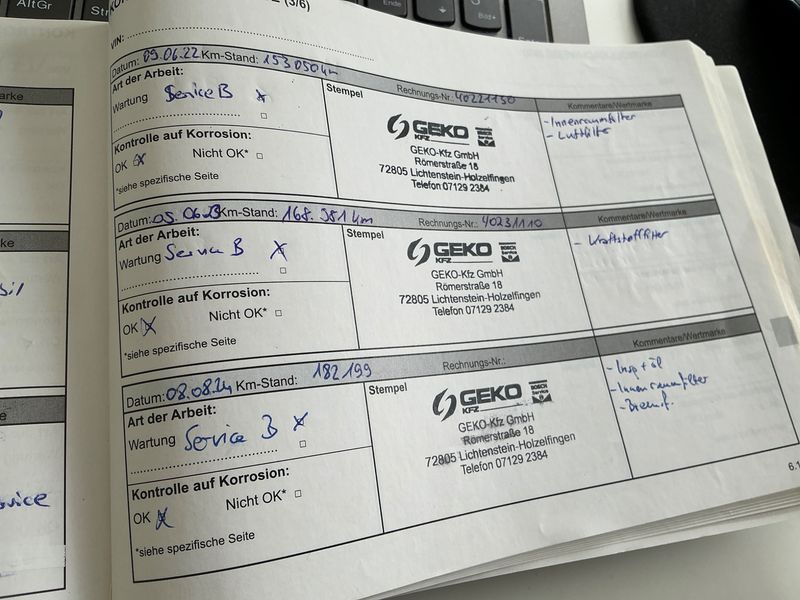 AltGr
Ende
Bild
(3/6)
VIN:
Datum: 09.06.22 Km-Stand: 153050 km
Rechnungs-Nr.: 40221130
Kommentare/Wertmarke
Art der Arbeit:
Wartung Service B x
Stempel
GEKO
KFZ
BOSCH
Service
GEKO-Kfz GmbH
Römerstraße 18
72805 Lichtenstein-Holzelfingen
Telefon 07129 2384
- Innenraumfilter
- Luftfilter
Kontrolle auf Korrosion:
OK x Nicht OK*
*siehe spezifische Seite
Datum: 05.06.23 Km-Stand: 168.981 km
Rechnungs-Nr.: 40231110
Kommentare/Wertmarke
Art der Arbeit:
Wartung Service B x
Stempel
GEKO
KFZ
BOSCH
Service
GEKO-Kfz GmbH
Römerstraße 18
72805 Lichtenstein-Holzelfingen
Telefon 07129 2384
- Kraftstofffilter
Kontrolle auf Korrosion:
OK x Nicht OK*
*siehe spezifische Seite
Datum: 08.08.24 Km-Stand: 182199
Rechnungs-Nr.:
Kommentare/Wertmarke
Art der Arbeit:
Wartung Service B x
Stempel
GEKO
KFZ
BOSCH
Service
GEKO-Kfz GmbH
Römerstraße 18
72805 Lichtenstein-Holzelfingen
Telefon 07129 2384
- Insp + öl
- Innenraumfilter
- Bremsf.
Kontrolle auf Korrosion:
OK x Nicht OK*
*siehe spezifische Seite